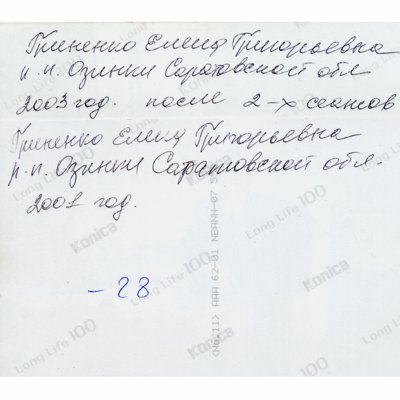 Гриненко Елена Григорьевна
р.п. Озинки Саратовской обл
2003 год. после 2-х сеансов
Гриненко Елена Григорьевна
р.п. Озинки Саратовской обл.
2001 год.
-28
Long Life 100
Konica
<No.11> AAA 62-01 NBANN-07 5